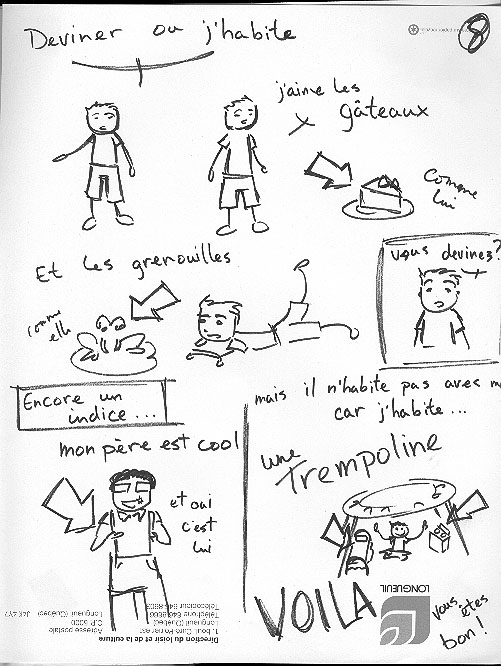 Deviner ou j'habite
8
j'aime les
gâteaux
comme
lui
Et les grenouilles
comme
elle
vous devinez?
Encore un
indice...
mais il n'habite pas avec m
car j'habite...
mon père est cool
et oui
c'est
lui
une
Trempoline
VOILA
vous êtes
bon!
LONGUEUIL
Direction du loisir et de la culture
Longueuil (Québec)
Adresse postale
C.P. 5000
Longueuil (Québec) J4K 4Y7